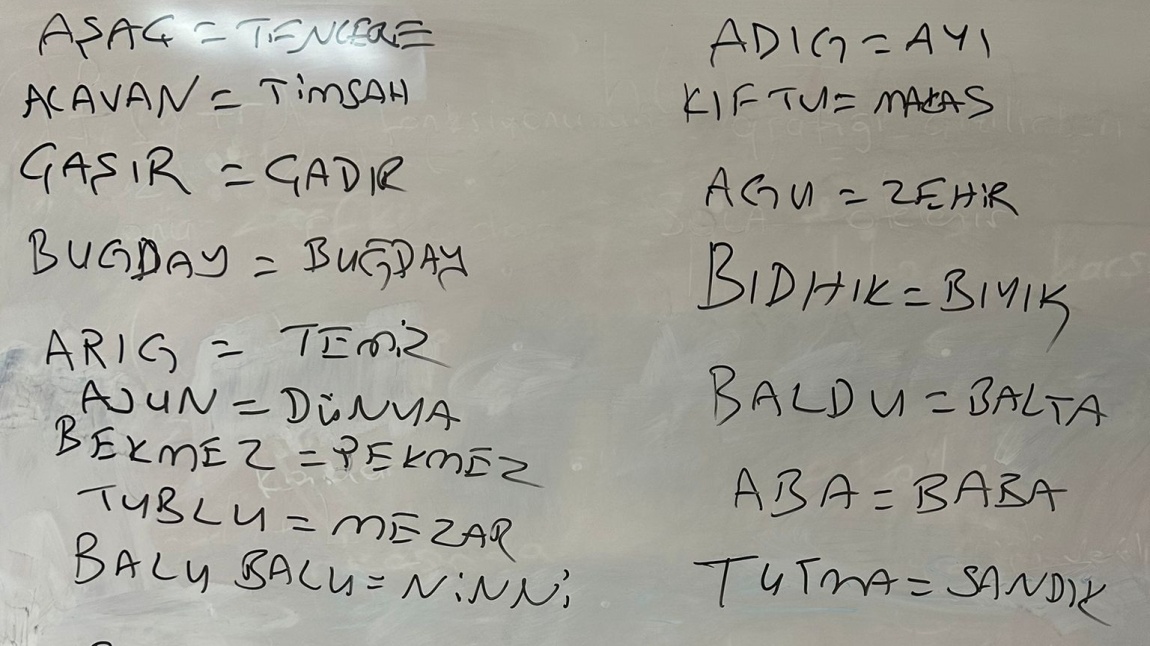 AŞAG = TENCERE
ACAVAN = TİMSAH
GAŞIR = GADIR
BUGDAY = BUĞDAY
ARIG = TEMİZ
AJUN = DÜNYA
BEKMEZ = PEKMEZ
TUBLU = MEZAR
BALU BALU = NİNNİ
ADIG = AYI
KIFTU = MAKAS
AGU = ZEHİR
BIDHIK = BIYIK
BALDU = BALTA
ABA = BABA
TUTMA = SANDIK